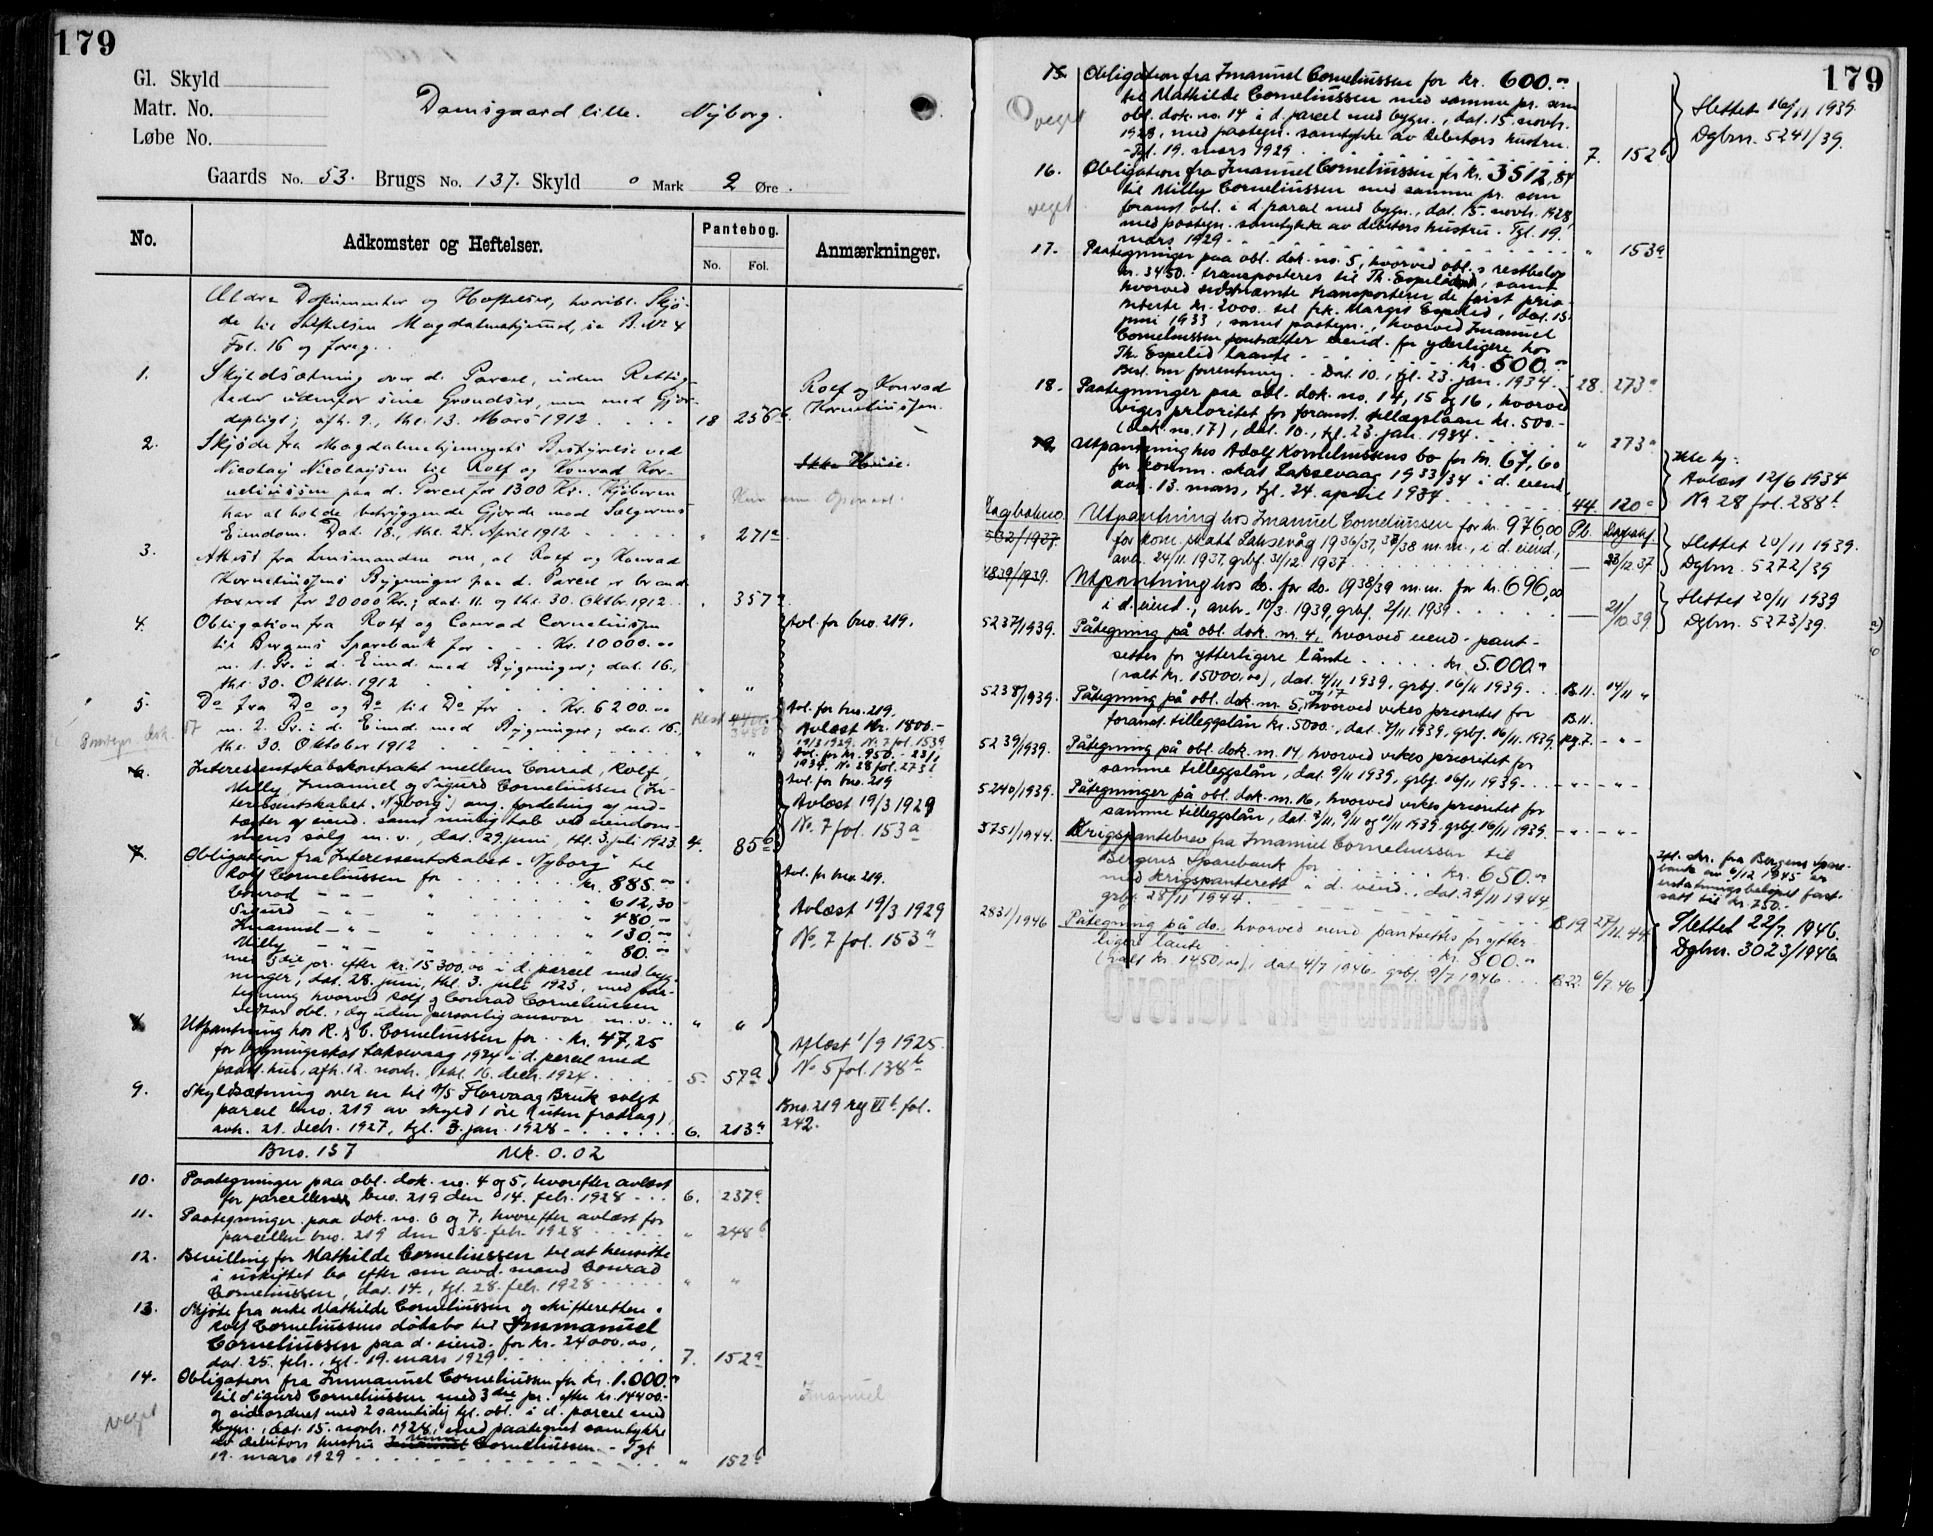 179
Gl. Skyld
Matr. No.
Løbe No.
Damsgaard lille. Nyborg.
Gaards No. 53. Brugs No. 137. Skyld 0 Mark 2 Øre.
No.
Adkomster og Heftelser.
Pantebog.
No. Fol.
Anmærkninger.
Ældre Dokumenter og Heftelser, hvoribl. Skjø-
de til Stiftelsen Magdalenehjemmet, se B. No 4
Fol. 16 og foreg.
1. Skyldsætning over d. Parcel, uden Rettig-
heder udenfor sine Grændser, men med Gjer-
depligt; afh. 9., thl. 13. Mars 1912 18 256b
Rolf og Konrad
Korneliussen.
2. Skjøde fra Magdalenehjemmets Bestyrelse ved
Nicolay Nicolaysen til Rolf og Konrad Kor-
neliussen paa d. Parcel for 1300 Kr. Kjøberen
har at holde betryggende Gjerde mod Sælgerens
Eiendom. Dat. 18., thl. 24. April 1912 " 271a
Ikke Huse.
3. Attest fra Lensmanden om, at Rolf og Konrad
Korneliussens Bygninger paa d. Parcel er brand-
taxeret for 20000 Kr.; dat. 11. og thl. 30. Oktbr. 1912 " 357a
4. Obligation fra Rolf og Conrad Corneliussen
til Bergens Sparebank for Kr. 10000.00
m. 1. Pr. i d. Eiend. med Bygninger; dat. 16.,
thl. 30. Oktbr. 1912 " "
Avl. for bno. 219.
5. Do fra Do og Do til Do for Kr. 6200.00
m. 2. Pr. i d. Eiend. med Bygninger; dat. 16.,
thl. 30. Oktober 1912 " "
Rest 4400.-
3450
Avl. for bno. 219.
Avlæst Kr. 1800.-
19/3 1929. No. 7 fol. 153a
Avl. for kr. 950.- 23/1
1934. No 28 fol. 273a
6. Interessentskabskontrakt mellem Conrad, Rolf,
Milly, Imanuel og Sigurd Corneliussen (In-
teressentskabet "Nyborg") ang. fordeling av ind-
tægter af eiend. samt mulig tab ved eiendom-
mens salg m. v., dat. 29. juni, thl. 3. juli 1923. 4. 85b
Avl. for bno. 219
Avlæst 19/3 1929
No. 7 fol. 153a
7. Obligation fra Interessentskabet "Nyborg" til
Rolf Corneliussen for kr. 885.00
Conrad - " - " " 612,30
Sigurd - " - " " 480.-
Imanuel - " - " " 130.-
Milly - " - " " 80.-
med 3die pr. efter kr. 15300.00 i d. parcel med byg-
ninger, dat. 28. juni, thl. 3. juli 1923, med paa-
tegning hvorved Rolf og Conrad Corneliussen
vedtar obl., dog uden personlig ansvar m. v. " "
Avl. for bno. 219.
Avlæst 19/3 1929
No. 7 fol. 153a
8. Utpantning hos R. & C. Corneliussen for kr. 47,25
for bygningsskat Laksevaag 1924 i d. parcel med
paast. hus, afh. 12. novbr., thl. 16. decbr. 1924. 5. 57a
Aflæst 1/9 1925.
No 5 fol. 138b
9. Skyldsætning over en til A/S Florvaag Bruk solgt
parcel bno. 219 av skyld 1 øre (uten fradrag)
avh. 21. decbr. 1927, tgl. 3. jan. 1928 6. 213a
Bno. 219 reg VI b. fol.
242.
Bno. 137 Mk. 0.02
10. Paategninger paa obl. dok. no. 4 og 5, hvorefter avlæst
for parcellen bno. 219 den 14. febr. 1928 6. 237a
11. Paategninger paa dok. no. 6 og 7, hvorefter avlæst for
parcellen bno. 219 den 28. febr. 1928 " 248b
12. Bevilling for Mathilde Corneliussen til at hensitte
i uskiftet bo efter sin avd. mand Conrad
Corneliussen, dat. 14., tgl. 28. febr. 1928 " "
13. Skjøte fra enke Mathilde Corneliussen og skifteretten i
Rolf Corneliussens dødsbo til Immanuel
Corneliussen paa d. eiend. for kr. 24000.00,
dat. 25. febr., tgl. 19. mars 1929 7. 152a
14. Obligation fra Immanuel Corneliussen for kr. 1.000.00
til Sigurd Corneliussen med 3dje pr. efter kr. 14400.-
og sideordnet med 2 samtidig tgl. obl. i d. parcel med
bygn., dat. 15. novbr. 1928, med paategnet samtykke
av debitors hustru Corneliussen - Tgl.
19. mars 1929 " 152b
veget
Imanuel
179
15. Obligation fra Imanuel Corneliussen for kr. 600.00
til Mathilde Corneliussen med samme pr. som
obl. dok. no. 14 i d. parcel med bygn., dat. 15. novbr.
1928, med paategn. samtykke av debitors hustru.
- Tgl. 19. mars 1929 7. 152b
veget
Slettet 16/11 1939.
Dgbnr. 5241/39.
16. Obligation fra Imanuel Corneliussen for kr. 3512,84
til Milly Corneliussen med samme pr. som
foranst. obl. i d. parcel med bygn., dat. 15. novbr. 1928,
med paategn. samtykke av debitors hustru. Tgl. 19.
mars 1929 " 153a
veget
17. Paategninger paa obl. dok. no. 5, hvorved obl.s restbeløp
kr. 3450.- transporteres til Th. Espelid, samt
hvorved sidstnævnte transporterer de først prio-
riterte kr. 2000. til frk. Margit Espelid, dat. 15.
juni 1933, samt paategn., hvorved Imanuel
Corneliussen pantsætter eiend. for yderligere hos
Th. Espelid laante kr. 500.00
Best. om forrentning. - Dat. 10., tgl. 23. jan. 1934. 28. 273a
18. Paategninger paa obl. dok. no. 14, 15 og 16, hvorved
viges prioritet for foranst. tillægslaan kr. 500.-
(dok. no. 17), dat. 10., tgl. 23. jan. 1934. " 273a
19. Utpantning hos Adolf Korneliussens bo for kr. 67,60
for komm. skat Laksevaag 1933/34 i d. eiend,
avh. 13. mars, tgl. 24. april 1934. 44. 120a
Avlæst 12/6 1934
No 28 fol. 288b
Dagboknr.
5632/1937. Utpantning hos Imanuel Corneliussen for kr. 976,00
for kom. skatt Laksevåg 1936/37, 37/38 m.m., i d. eiend,
avh. 24/11. 1937, grbf. 31/12 1937
Pb. Dagbokf.
- 28/12.37.
Slettet 20/11 1939.
Dgbnr. 5272/39
4839/1939. Utpantning hos do. for do. 1938/39 m.m. for kr. 696,00
i d. eiend., avh. 10/3. 1939, grbf. 2/11. 1939 - 21/10.39.
Slettet 20/11 1939
Dgbnr. 5273/39.
5237/1939. Påtegning på obl. dok. nr. 4, hvorved eiend. pant-
settes for ytterligere lånte kr. 5.000.00
(ialt kr. 15000,00), dat. 4/11 1939, grbf. 16/11 1939. B.11. 14/11 "
5238/1939. Påtegning på obl. dok. nr. 5, og 17 hvorved vikes prioritet for
foranst. tilleggslån kr. 5000.-, dat. 7/11 1939, grbf. 16/11. 1939.
B.11.
5239/1939. Påtegning på obl. dok. nr. 14, hvorved vikes prioritet for
samme tilleggslån, dat. 9/11 1939, grbf. 16/11 1939. - " - - " -
5240/1939. Påtegninger på obl. dok. nr. 16, hvorved vikes prioritet for
samme tilleggslån, dat. 8/11, 9/11 og 11/11 1939, grbf. 16/11 1939. - " - - " -
5751/1944. Krigspantebrev fra Imanuel Corneliussen til
Bergens Sparebank for kr. 650.00
med krigspanterett i d. eiend., dat. 24/11 1944,
grbf. 28/11 1944. B.19. 27/11.44.
fra Bergens Spare-
bank av 6/12 1945 er
erstatningsbeløpet fast-
satt til kr. 750.-
2831/1946 Påtegning på do., hvorved eiend. pantsettes for ytter-
ligere lånte kr. 800.00
(ialt kr. 1450,00), dat. 4/7 1946. grbf. 9/7 1946 B.22. 6/7.46
Slettet 22/7. 1946.
Dgbnr. 3023/1946.